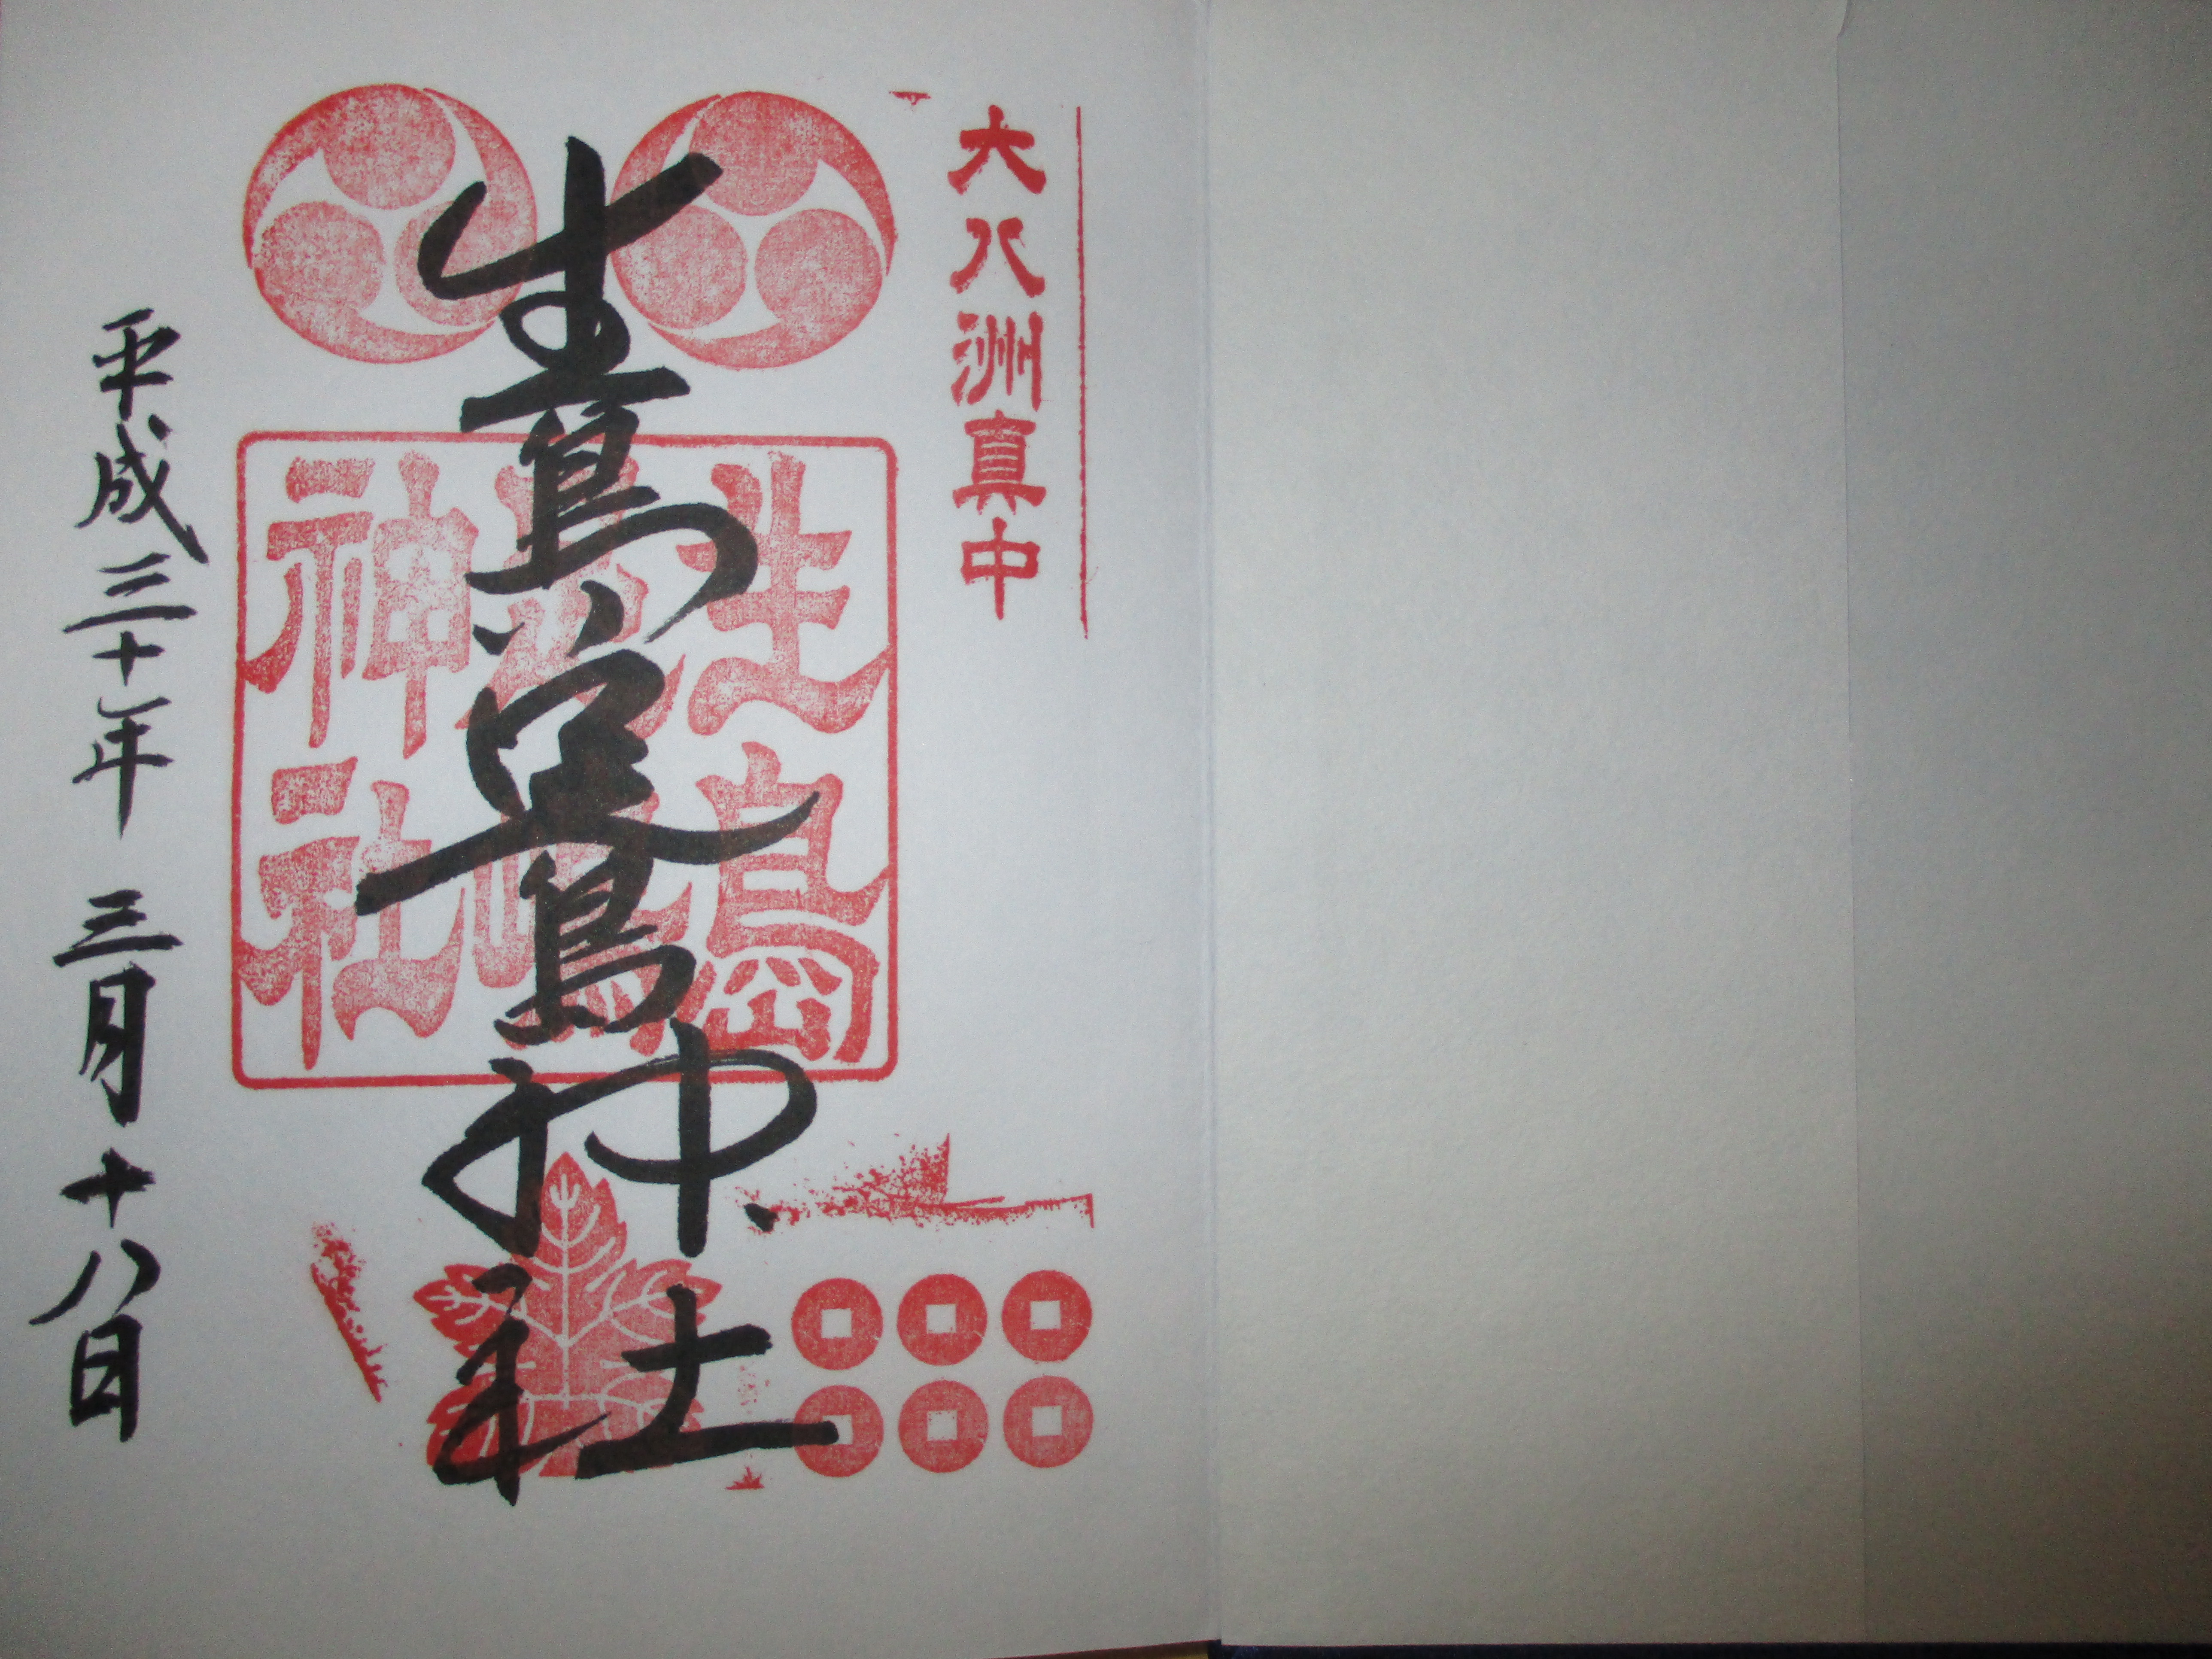 大八洲真中
生島足島神社
生島足島神社
平成三十年 三月十八日